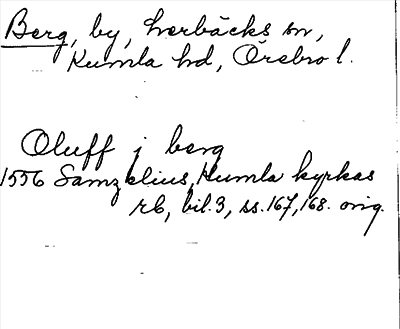 Berg, by, Lerbäcks sn,
Kumla hd, Örebro l.
Oluff j berg
1556 Samzelius, Kumla kyrkas
rb, bil. 3, ss. 167, 168. orig.